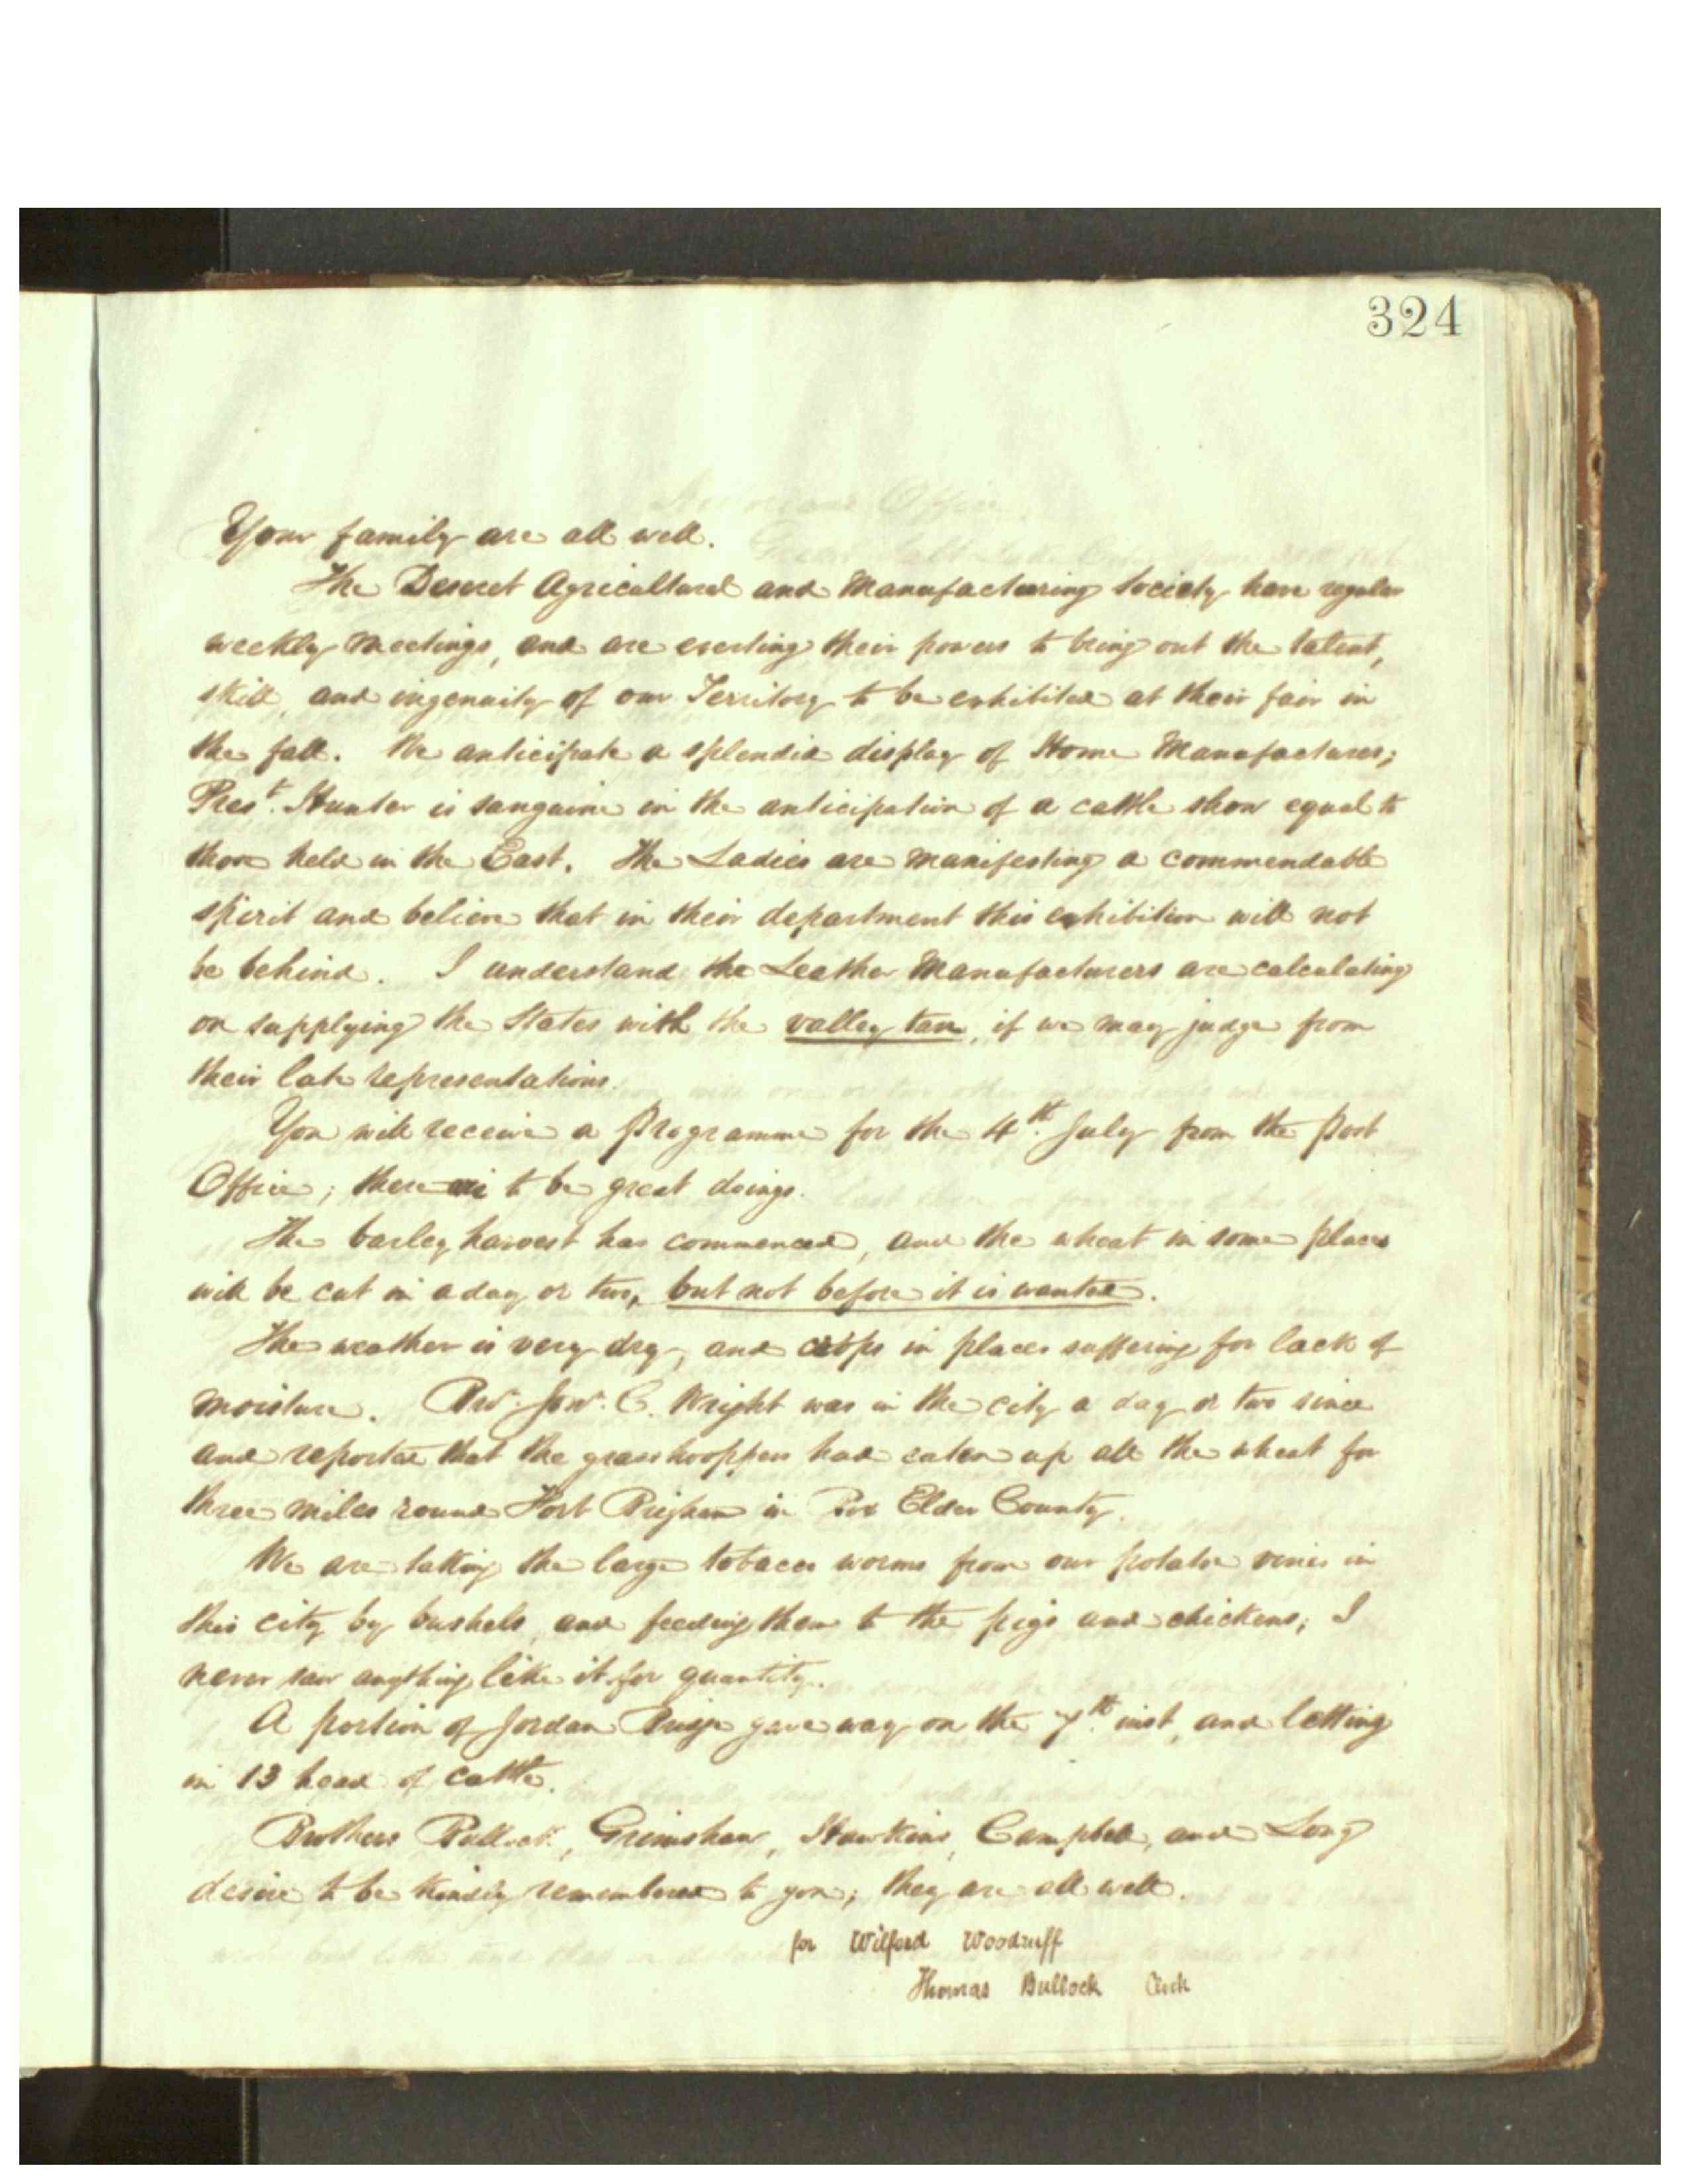 324
Your family are all well.
The Deseret Agricultural and Manufacturing Society have regular
weekly meetings, and are exerting their powers to bring out the talent,
skill, and ingenuity of our Territory to be exhibited at their fair in
the fall. We anticipate a splendid display of Home Manufactures;
Prest. Hunter is sanguine in the anticipation of a cattle show equal to
those held in the East. The Ladies are manifesting a commendable
spirit and believe that in their department this exhibition will not
be behind. I understand the Leather Manufacturers are calculating
on supplying the States with the valley tan, if we may judge from
their late representations.
You will receive a Programme for the 4th. July from the Post
Office; there is to be great doings.
The barley harvest has commenced, and the wheat in some places
will be cut in a day or two, but not before it is wanted.
The weather is very dry, and crops in places suffering for lack of
moisture. Bro. Jon. C. Wright was in the city a day or two since
and reported that the grasshoppers had eaten up all the wheat for
three miles round Fort Brigham in Box Elder County.
We are taking the large tobacco worms from our potatoe vines in
this city by bushels, and feeding them to the pigs and chickens; I
never saw anything like it for quantity.
A portion of Jordan Bridge gave way on the 7th. inst, and letting
in 13 head of cattle.
Brothers Bullock, Grimshaw, Hawkins, Campbell, and Long
desire to be kindly remembered to you; they are all well.
for Wilford Woodruff
Thomas Bullock Clerk